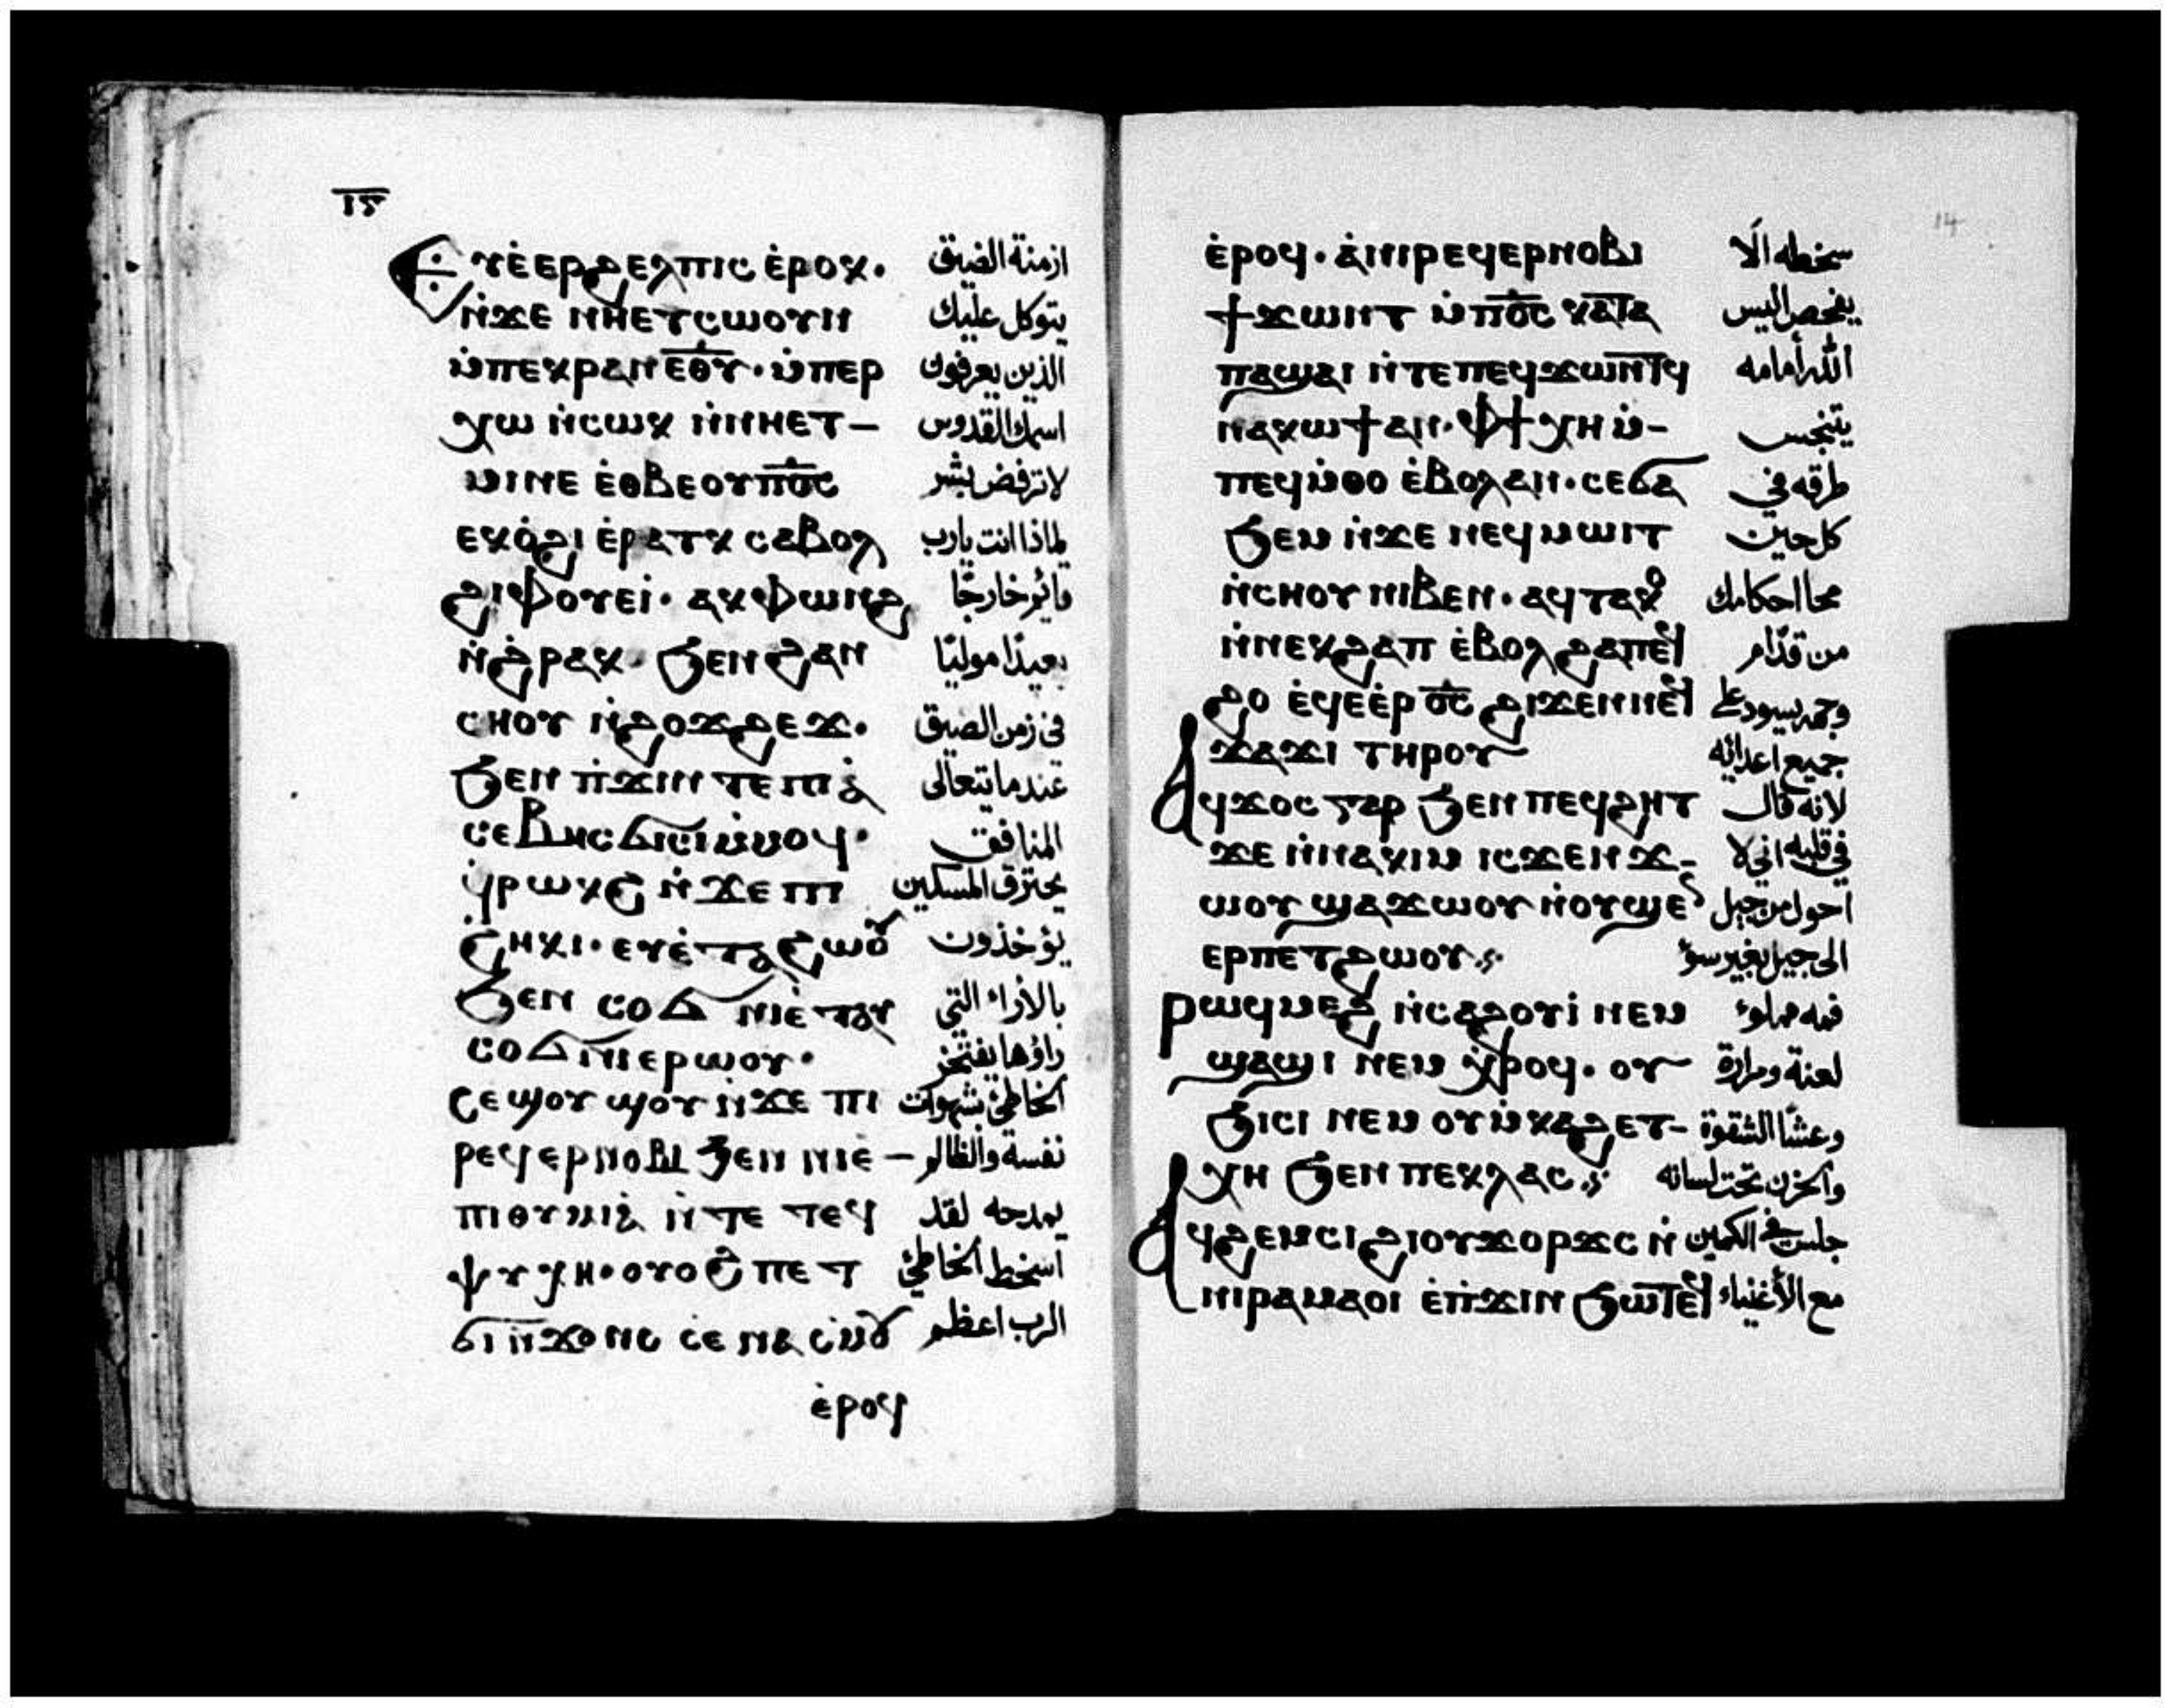 ⲓⲋ
Ⲉⲩⲉ̀ⲉⲣϩⲉⲗⲡⲓⲥ ⲉ̀ⲣⲟⲕ· ازمنة الضيق
ⲛ̀ϫⲉ ⲛⲏⲉⲧⲥⲱⲟⲩⲛ يتوكل عليك
ⲙ̀ⲡⲉⲕⲣⲁⲛ ⲉ̅ⲑ̅ⲩ̅· ⲙ̀ⲡⲉⲣ الذين يعرفون
ⲭⲱ ⲛ̀ⲥⲱⲕ ⲛ̀ⲛⲏⲉⲧ- اسمك القدوس
ⲙⲓⲛⲉ ⲉ̀ⲑⲃⲉⲟⲩ ⲡ̅ⲟ̅ⲥ̅ لا ترفض بشر
ⲉⲕⲟ̀ϩⲓ ⲉ̀ⲣⲁⲧⲕ ⲥⲁⲃⲟⲗ لماذا انت يارب
ϩⲓⲫⲟⲩⲉⲓ· ⲁⲕⲫⲱⲛϩ قائم خارجًا
ⲛ̀ϩⲣⲁⲕ· ϧⲉⲛ ϩⲁⲛ بعيدًا موليًا
ⲥⲏⲟⲩ ⲛ̀ϩⲟϫϩⲉϫ· فى زمن الضيق
ϧⲉⲛ ⲡ̀ϫⲓⲛ ⲧⲉ ⲡⲓⲁ̀ عندما يتعالى
ⲥⲉⲃⲏⲥ ϭⲓⲥⲓ ⲙ̀ⲙⲟϥ· المنافق
ϥ̀ⲣⲱⲕϩ ⲛ̀ϫⲉ ⲡⲓ يحترق المسكين
ϩⲏⲕⲓ· ⲉⲩⲉ̀ⲧⲁϩⲱⲟⲩ يؤخذون
ϧⲉⲛ ⲥⲟϭⲛⲓ ⲉ̀ⲧⲁⲩ بالأراء التي
ⲥⲟϭⲛⲓ ⲉⲣⲱⲟⲩ· راؤها يفتخر
ⲥⲉϣⲟⲩϣⲟⲩ ⲛ̀ϫⲉ ⲡⲓ الخاطئ بشهوات
ⲣⲉϥⲉⲣⲛⲟⲃⲓ ϧⲉⲛ ⲛⲓⲉ̀- نفسه والظالم
ⲡⲓⲑⲩⲙⲓⲁ̀ ⲛ̀ⲧⲉ ⲧⲉϥ يمدحه لقد
ⲯⲩⲭⲏ· ⲟⲩⲟϩ ⲡⲉⲧ اسخط الخاطئ
ϭⲓ ⲛ̀ϫⲟⲛⲥ ⲥⲉⲛⲁⲥⲙⲟⲩ الرب اعظم
ⲉ̀ⲣⲟϥ
14
ⲉ̀ⲣⲟϥ· ⲁ̀ⲡⲓⲣⲉϥⲉⲣⲛⲟⲃⲓ سخطه الّا
ϯϫⲱⲛⲧ ⲙ̀ⲡ̅ⲟ̅ⲥ̅ ⲕⲁⲧⲁ يفحص اليس
ⲡⲁϣⲁⲓ ⲛ̀ⲧⲉ ⲡⲉϥϫⲱⲛⲧ ϥ الله أمامه
ⲛⲁⲕⲱϯ ⲁⲛ· ⲫϯ ⲭⲏ ⲙ̀- يتنجس
ⲡⲉϥⲙ̀ⲑⲟ ⲉ̀ⲃⲟⲗ ⲁⲛ· ⲥⲉϭⲁ طرقه في
ϧⲉⲙ ⲛ̀ϫⲉ ⲛⲉϥⲙⲱⲓⲧ كل حين
ⲛ̀ⲥⲏⲟⲩ ⲛⲓⲃⲉⲛ· ⲁϥⲧⲁⲕⲟ محا احكامك
ⲛ̀ⲛⲉⲕϩⲁⲡ ⲉ̀ⲃⲟⲗ ϩⲁⲡⲉϥ من قدّام
ϩⲟ ⲉϥⲉⲉ̀ⲣ ⲟ̅ⲥ̅ ϩⲓϫⲉⲛ ⲛⲉϥ وجهه يسود على
ϫⲁϫⲓ ⲧⲏⲣⲟⲩ جميع اعدائه
Ⲁϥϫⲟⲥ ⲅⲁⲣ ϧⲉⲛ ⲡⲉϥϩⲏⲧ لانه قال
ϫⲉ ⲛ̀ⲛⲁⲕⲓⲙ ⲓⲥϫⲉⲛ ϫ- في قلبه اني لا
ⲱⲟⲩ ϣⲁ ϫⲱⲟⲩ ⲛ̀ⲟⲩϣⲉⲛ احول من جيل
ⲉⲣⲡⲉⲧϩⲱⲟⲩ الى جيل بغير سوء
Ⲣⲱϥ ⲙⲉϩ ⲛ̀ⲥⲁϩⲟⲩⲓ̀ ⲛⲉⲙ فمه مملوء
ϣⲁϣⲓ ⲛⲉⲙ ⲭ̀ⲣⲟϥ· ⲟⲩ لعنة ومرارة
ϧⲓⲥⲓ ⲛⲉⲙ ⲟⲩⲙ̀ⲕⲁϩ ⲉⲧ- وغشًا الشقوة
ⲭⲏ ϧⲉⲛ ⲡⲉϥⲗⲁⲥ والحزن تحت لسانه
Ⲁϥϩⲉⲙⲥⲓ ϩⲓ ⲟⲩϫⲟⲣϫⲥ ⲛ̀ جلس في الكمين
ⲛⲓⲣⲁⲙⲁⲟⲓ ⲉ̀ⲡ̀ϫⲓⲛ ϧⲱⲧⲉⲃ مع الأغنياء